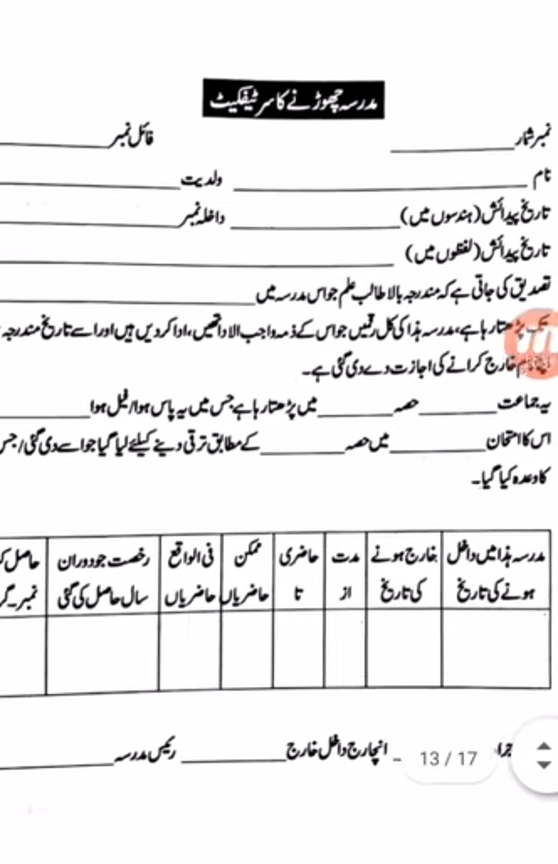 مدرسہ چھوڑنے کا سرٹیفکیٹ
نمبر شمار ________ فائل نمبر ________
نام ________ ولدیت ________
تاریخ پیدائش (ہندسوں میں) ________ داخلہ نمبر ________
تاریخ پیدائش (لفظوں میں) ________
تصدیق کی جاتی ہے کہ مندرجہ بالا طالب علم جو اس مدرسہ میں ________
تک پڑھتا رہا ہے، مدرسہ ہذا کی کل رقمیں جو اس کے ذمہ واجب الادا تھیں، ادا کر دیں ہیں اور اسے تاریخ مندرجہ
نام خارج کرانے کی اجازت دے دی گئی ہے۔
یہ جماعت ________ حصہ ________ میں پڑھتا رہا ہے جس میں یہ پاس ہوا/فیل ہوا ________
اس کا امتحان ________ میں حصہ ________ کے مطابق ترقی دینے کیلئے لیا گیا جو اسے دی گئی/جس
کا وعدہ کیا گیا۔
مدرسہ ہذا میں داخل ہونے کی تاریخ | خارج ہونے کی تاریخ | مدت از | حاضری تا | ممکن حاضریاں | فی الواقع حاضریاں | رخصت جو دوران سال حاصل کی گئی | حاصل نمبر
انچارج داخل خارج ________ رئیس مدرسہ ________
13 / 17